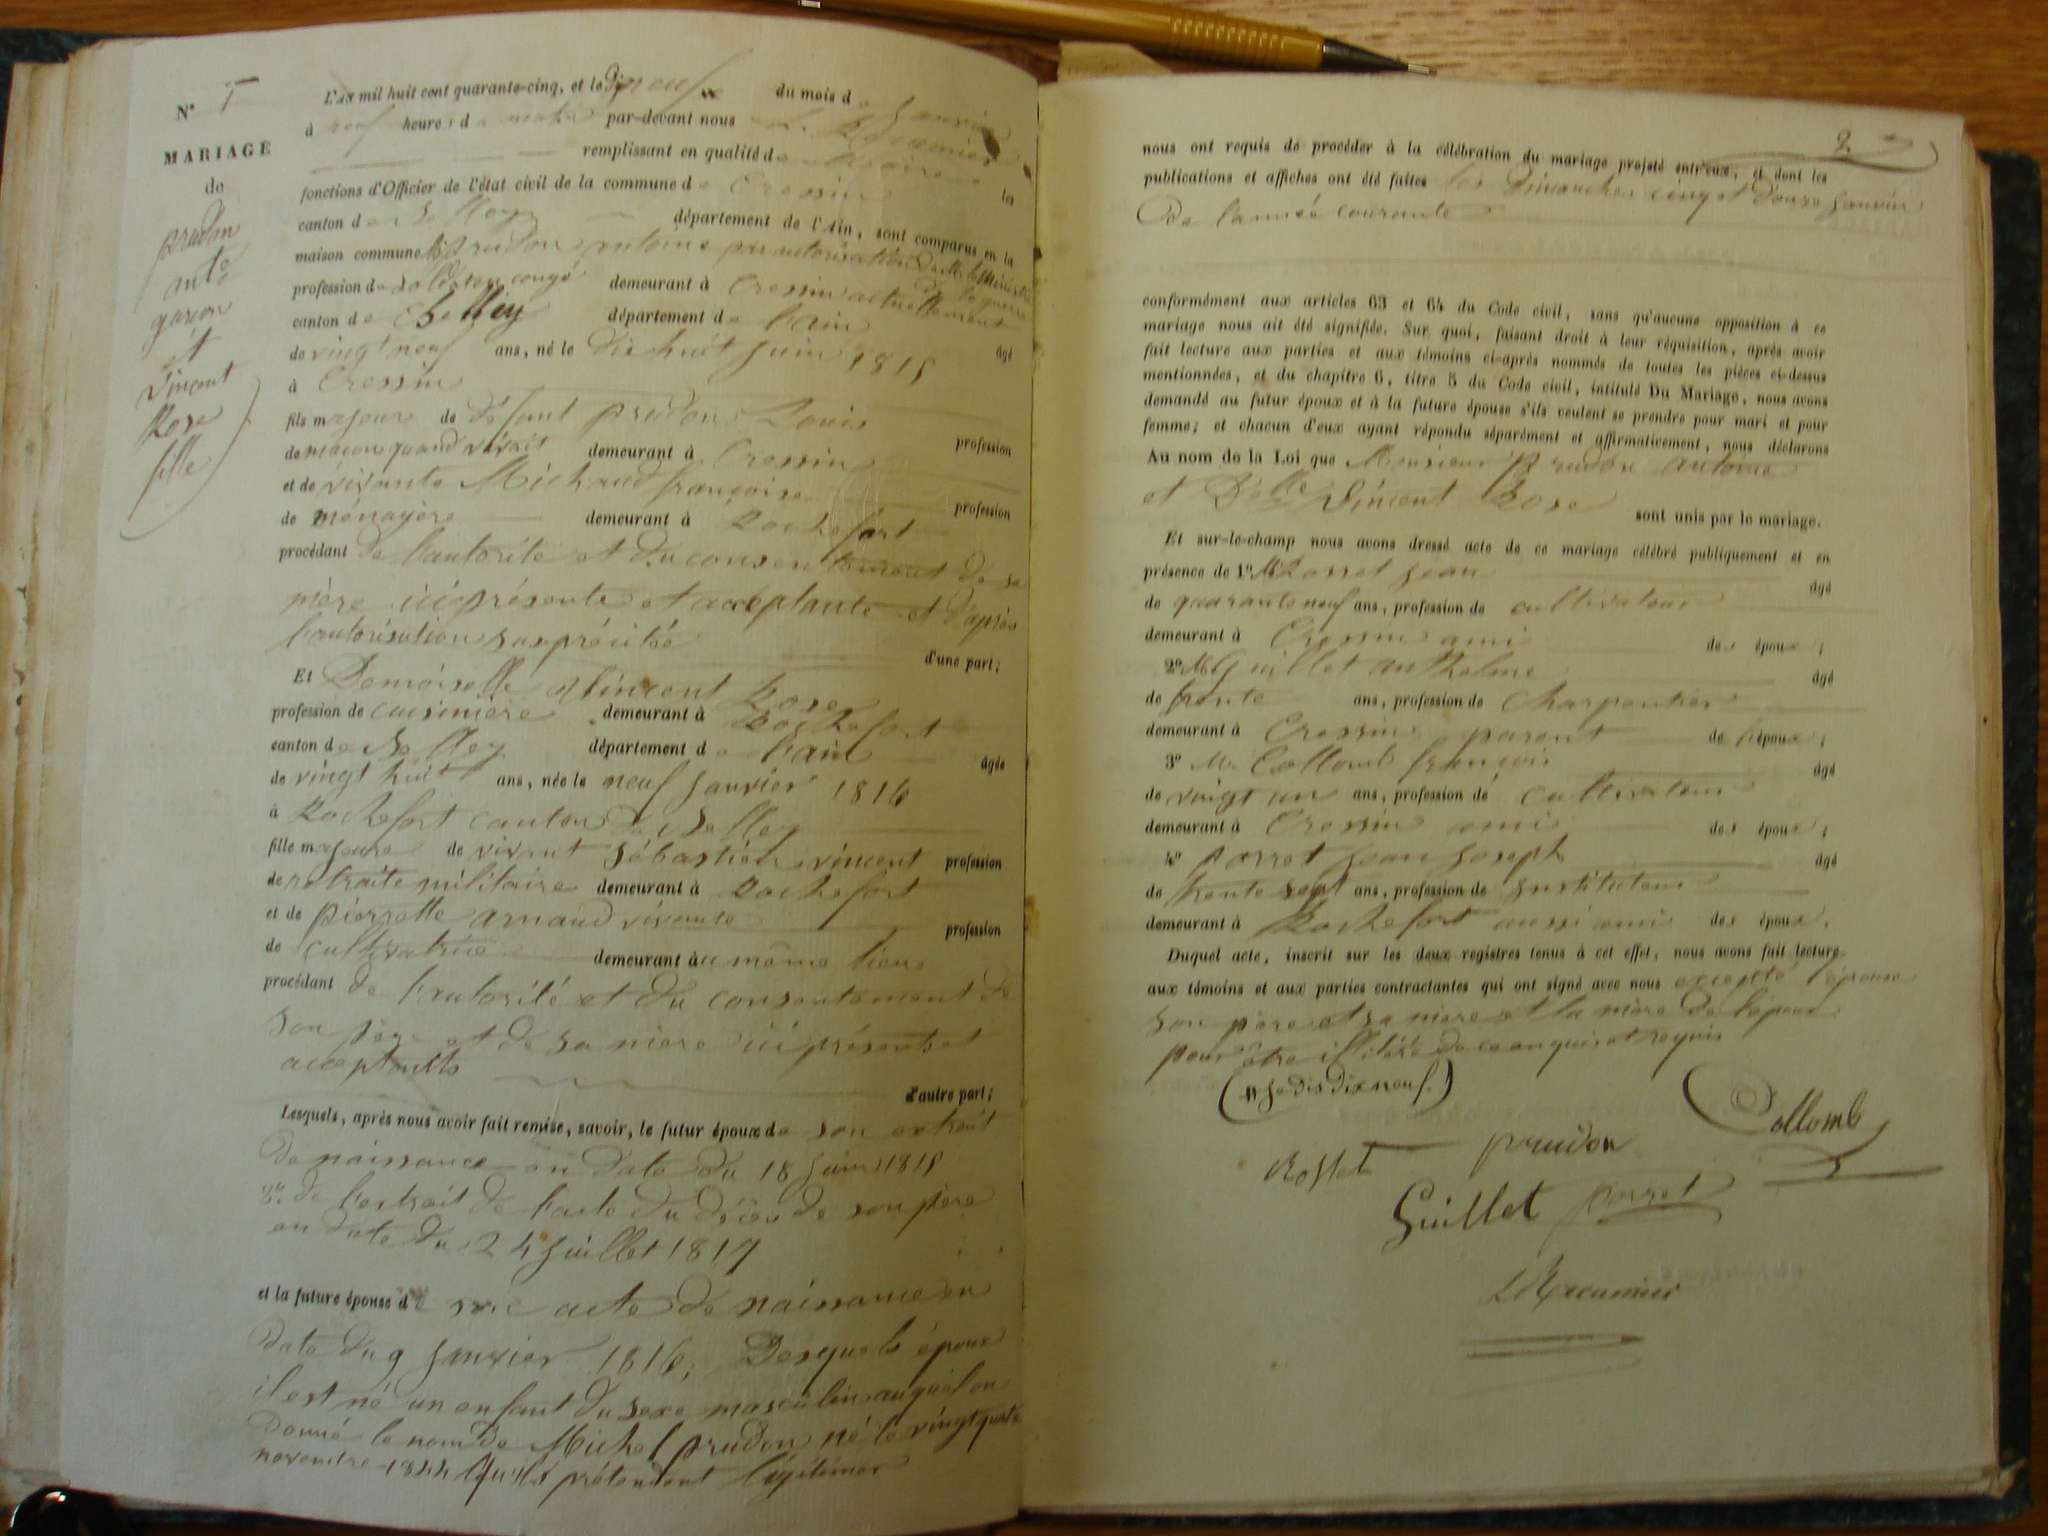 N° 1
MARIAGE
de
prudon
ant.e
garçon
et
Vincent
Rose
fille
L'an mil huit cent quarante-cinq, et le dix neuf du mois de Janvier
à neuf heures du matin par-devant nous
remplissant en qualité de Maire les
fonctions d'Officier de l'état civil de la commune de Cressin
canton de Belley département de l'Ain, sont comparus en la
maison commune M. prudon antoine par autorisation de M. le Ministre de la guerre
profession de soldat en congé demeurant à Cressin actuellement
canton de Belley département de l'ain
âgé
de vingt neuf ans, né le dix huit Juin 1815
à Cressin
fils majeur de défunt prudon Louis
profession
de maçon quand vivait demeurant à Cressin
et de vivante Michaud françoise
profession
de ménagère demeurant à Rochefort
procédant de l'autorité et du consentement de sa
mère ici présente et acceptante et d'après
l'autorisation susprécitée
d'une part;
Et Demoiselle Vincent Rose
profession de cuisinière demeurant à Rochefort
canton de Belley département de l'ain
âgée
de vingt huit ans, née le neuf Janvier 1816
à Rochefort canton de Belley
fille majeure de vivant Sébastien vincent profession
de retraite militaire demeurant à Rochefort
et de pierrette arnaud vivante
profession
de cultivatrice demeurant au même lieu
procédant de l'autorité et du consentement de
son père et de sa mère ici présents et
acceptants
d'autre part;
Lesquels, après nous avoir fait remise, savoir, le futur époux de son extrait
de naissance en date du 18 Juin 1815
2° de l'extrait de l'acte du décès de son père
en date du 24 Juillet 1817
et la future épouse de son acte de naissance en
date du 9 Janvier 1816; Desquels époux
il est né un enfant du sexe masculin auquel on
donné le nom de Michel prudon né le vingt quatre
novembre 1844 qu'ils prétendent légitimer
2
nous ont requis de procéder à la célébration du mariage projeté entr'eux, et dont les
publications et affiches ont été faites les dimanches cinq et douze Janvier
de l'année courante
conformément aux articles 63 et 64 du Code civil, sans qu'aucune opposition à ce
mariage nous ait été signifiée. Sur quoi, faisant droit à leur réquisition, après avoir
fait lecture aux parties et aux témoins ci-après nommés de toutes les pièces ci-dessus
mentionnées, et du chapitre 6, titre 5 du Code civil, intitulé Du Mariage, nous avons
demandé au futur époux et à la future épouse s'ils veulent se prendre pour mari et pour
femme; et chacun d'eux ayant répondu séparément et affirmativement, nous déclarons
Au nom de la Loi que Monsieur Prudon antoine
et Delle Vincent Rose sont unis par le mariage.
Et sur-le-champ nous avons dressé acte de ce mariage célébré publiquement et en
présence de 1° M. Rosset Jean
âgé
de quarante neuf ans, profession de cultivateur
demeurant à Cressin ami des époux;
2° M. Guillet anthelme
âgé
de trente ans, profession de charpentier
demeurant à Cressin parent de l'époux;
3° M. Collomb françois
âgé
de vingt un ans, profession de cultivateur
demeurant à Cressin ami des époux;
4° porret Jean Joseph
âgé
de trente sept ans, profession de Instituteur
demeurant à Rochefort aussi ami des époux.
Duquel acte, inscrit sur les deux registres tenus à cet effet, nous avons fait lecture
aux témoins et aux parties contractantes qui ont signé avec nous excepté l'épouse
son père et sa mère et la mère de l'époux
pour être illitéré de ce enquis et requis
(Je dis dix neuf.)
Collomb
Rosset prudon
Guillet porret